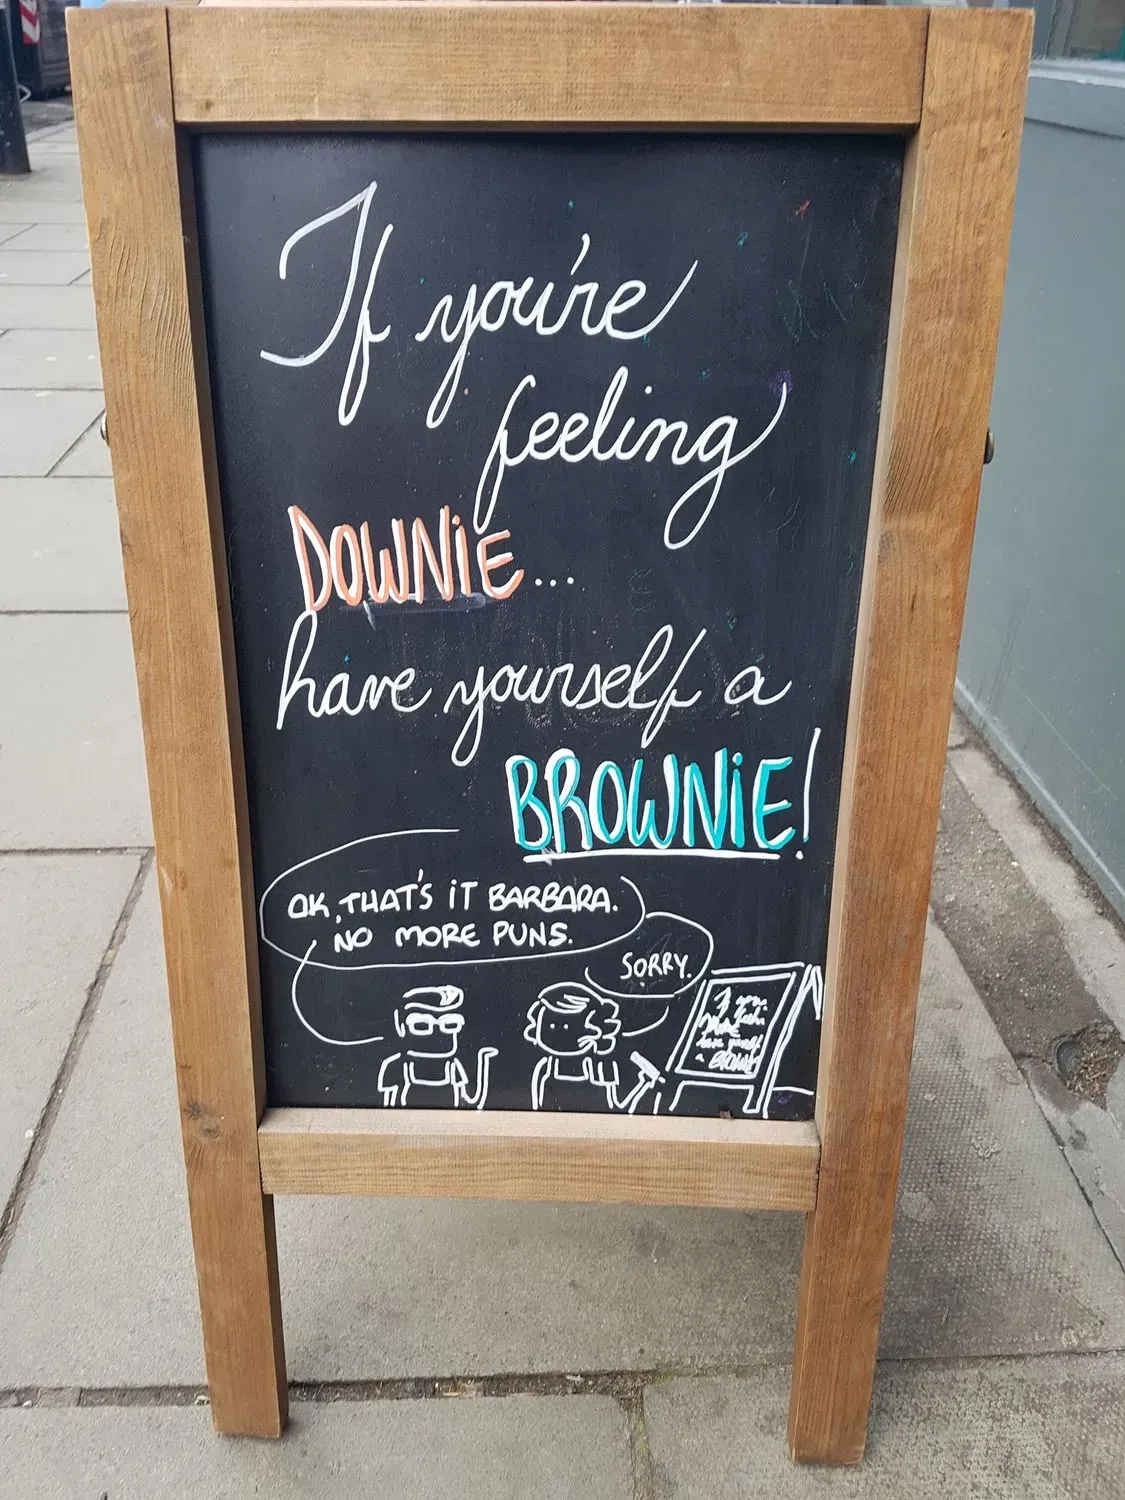 If you're
feeling
DOWNiE...
have yourself a
BROWNiE!
OK, THAT'S iT BARBARA.
NO MORE PUNS.
SORRY.